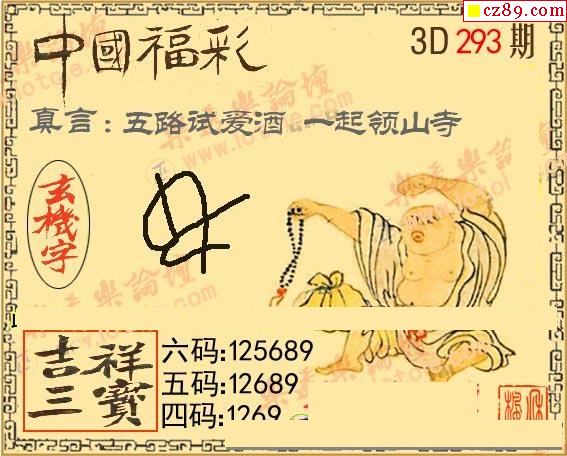 cz89.com
中國福彩
3D 293 期
真言：五路试爱酒 一起领山寺
玄機字
吉祥三寶
六码:125689
五码:12689
四码:1269